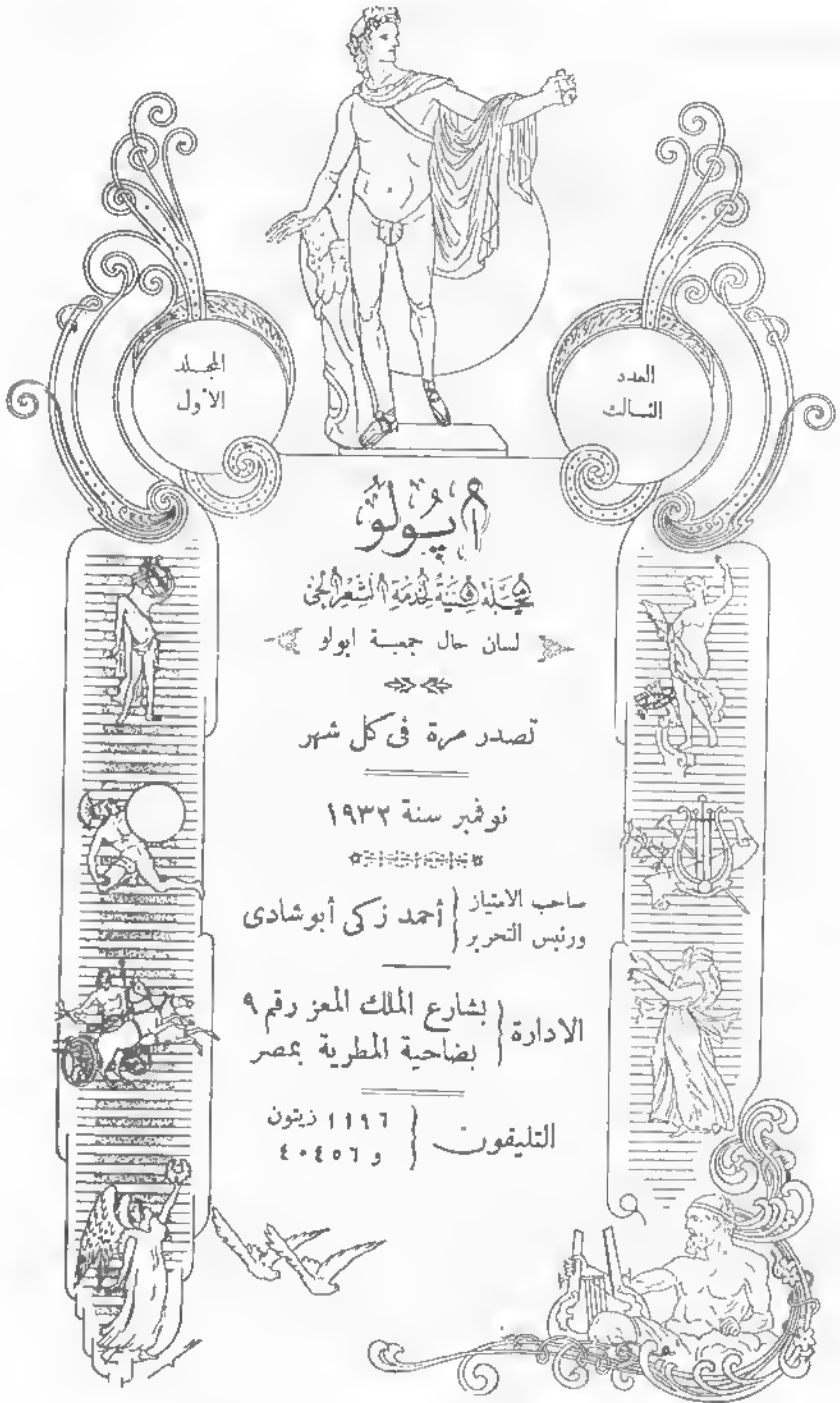 العدد
الثالث
المجلد
الأول
أپولو
مجلة فنية لخدمة الشعر الحي
لسان حال جمعية ابولو
تصدر مرة فى كل شهر
نوفمبر سنة ١٩٣٢
صاحب الامتياز
ورئيس التحرير
أحمد زكى أبوشادى
الادارة
بشارع الملك المعز رقم ٩
بضاحية المطرية بمصر
التليفون
١١٩٦ زيتون
و ٤٠٤٥٦